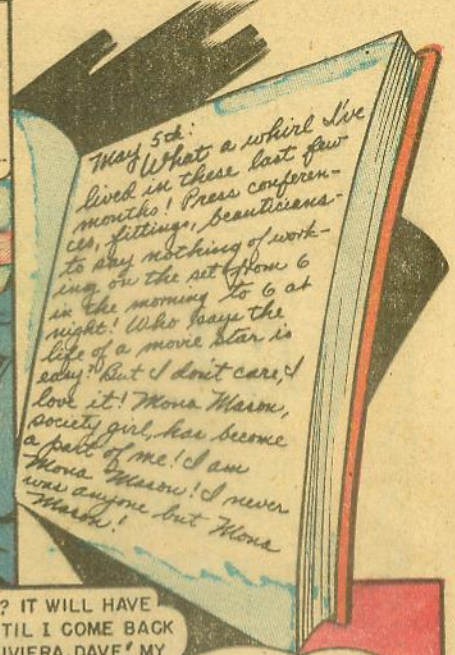 May 5th:
What a whirl I've
lived in these last few
months! Press conferen-
ces, fittings, beauticians-
to say nothing of work-
ing on the set from 6
in the morning to 6 at
night! Who says the
life of a movie star is
easy? But I don't care, I
love it! Mona Mason,
society girl, has become
a part of me! I am
Mona Mason! I never
was anyone but Mona
Mason!
? IT WILL HAVE
TIL I COME BACK
IVIERA, DAVE! MY